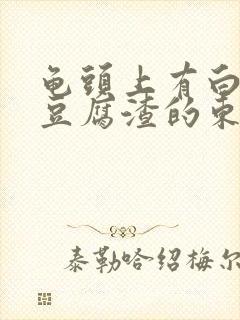 龟頭上有白
豆腐渣的東
泰勒哈绍梅尔